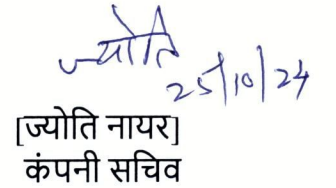 ज्योति
25/10/24
[ज्योति नायर]
कंपनी सचिव